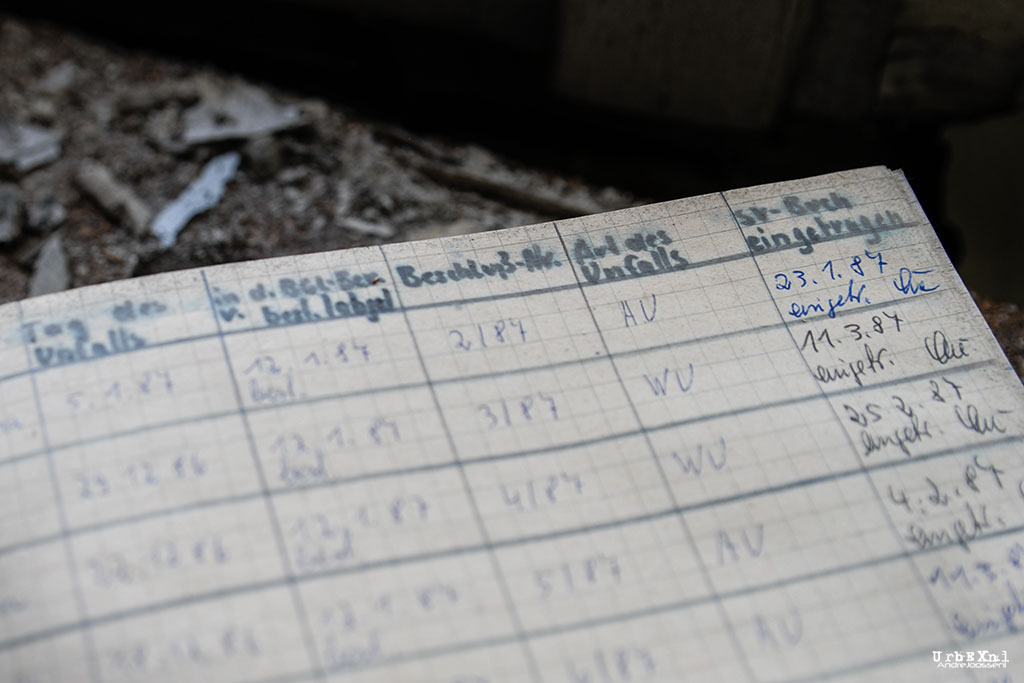 Tag des
Unfalls
in d. BGL-Ber.
v. best. labgel
Beschluß-Nr.
Art des
Unfalls
SV-Buch
eingetragen
5.1.87
12.1.87
best.
2/87
AU
23.1.87
eingetr.
29.12.86
12.1.87
best.
3/87
WU
11.3.87
eingetr.
22.12.86
12.1.87
best.
4/87
WU
25.2.87
eingetr.
12.86
12.1.87
best.
5/87
AU
4.2.87
eingetr.
AU
11.3.8
UrbEXnl
AndreJoosse.nl